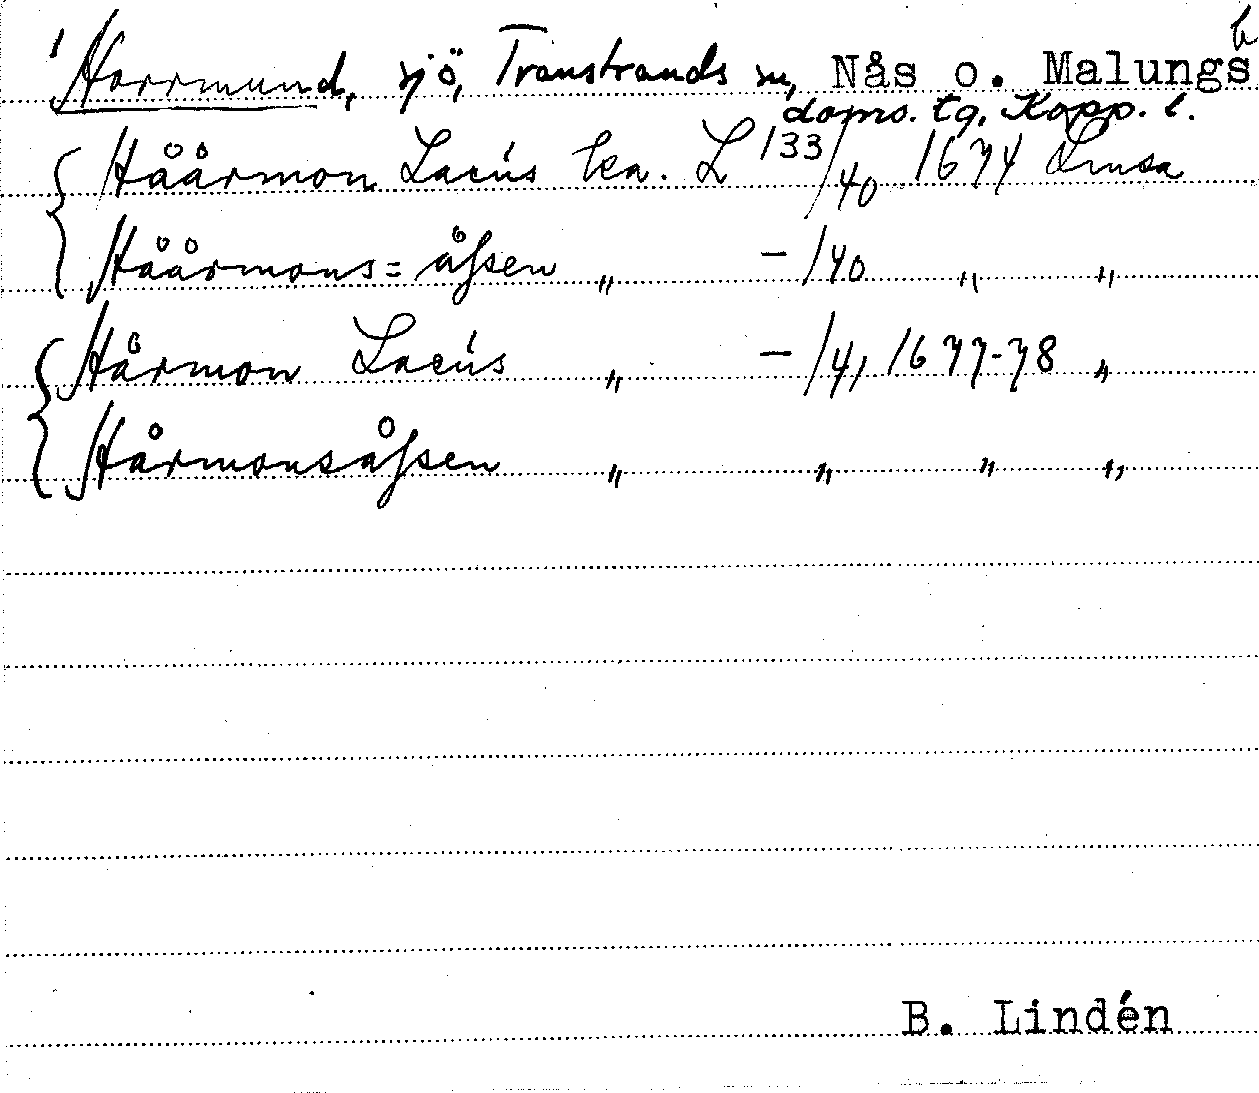 Horrmund, sjö, Transtrands sn, Nås o. Malungs
doms. tg. Kopp. l.
Håårmon Lacus ka. L 133/40 1674 Lmsa
Håårmons= åhsen „ – /40 „ „
Hårmon Lacus „ – /41 1677-78 „
Hårmonsåhsen „ „ „ „
B. Lindén